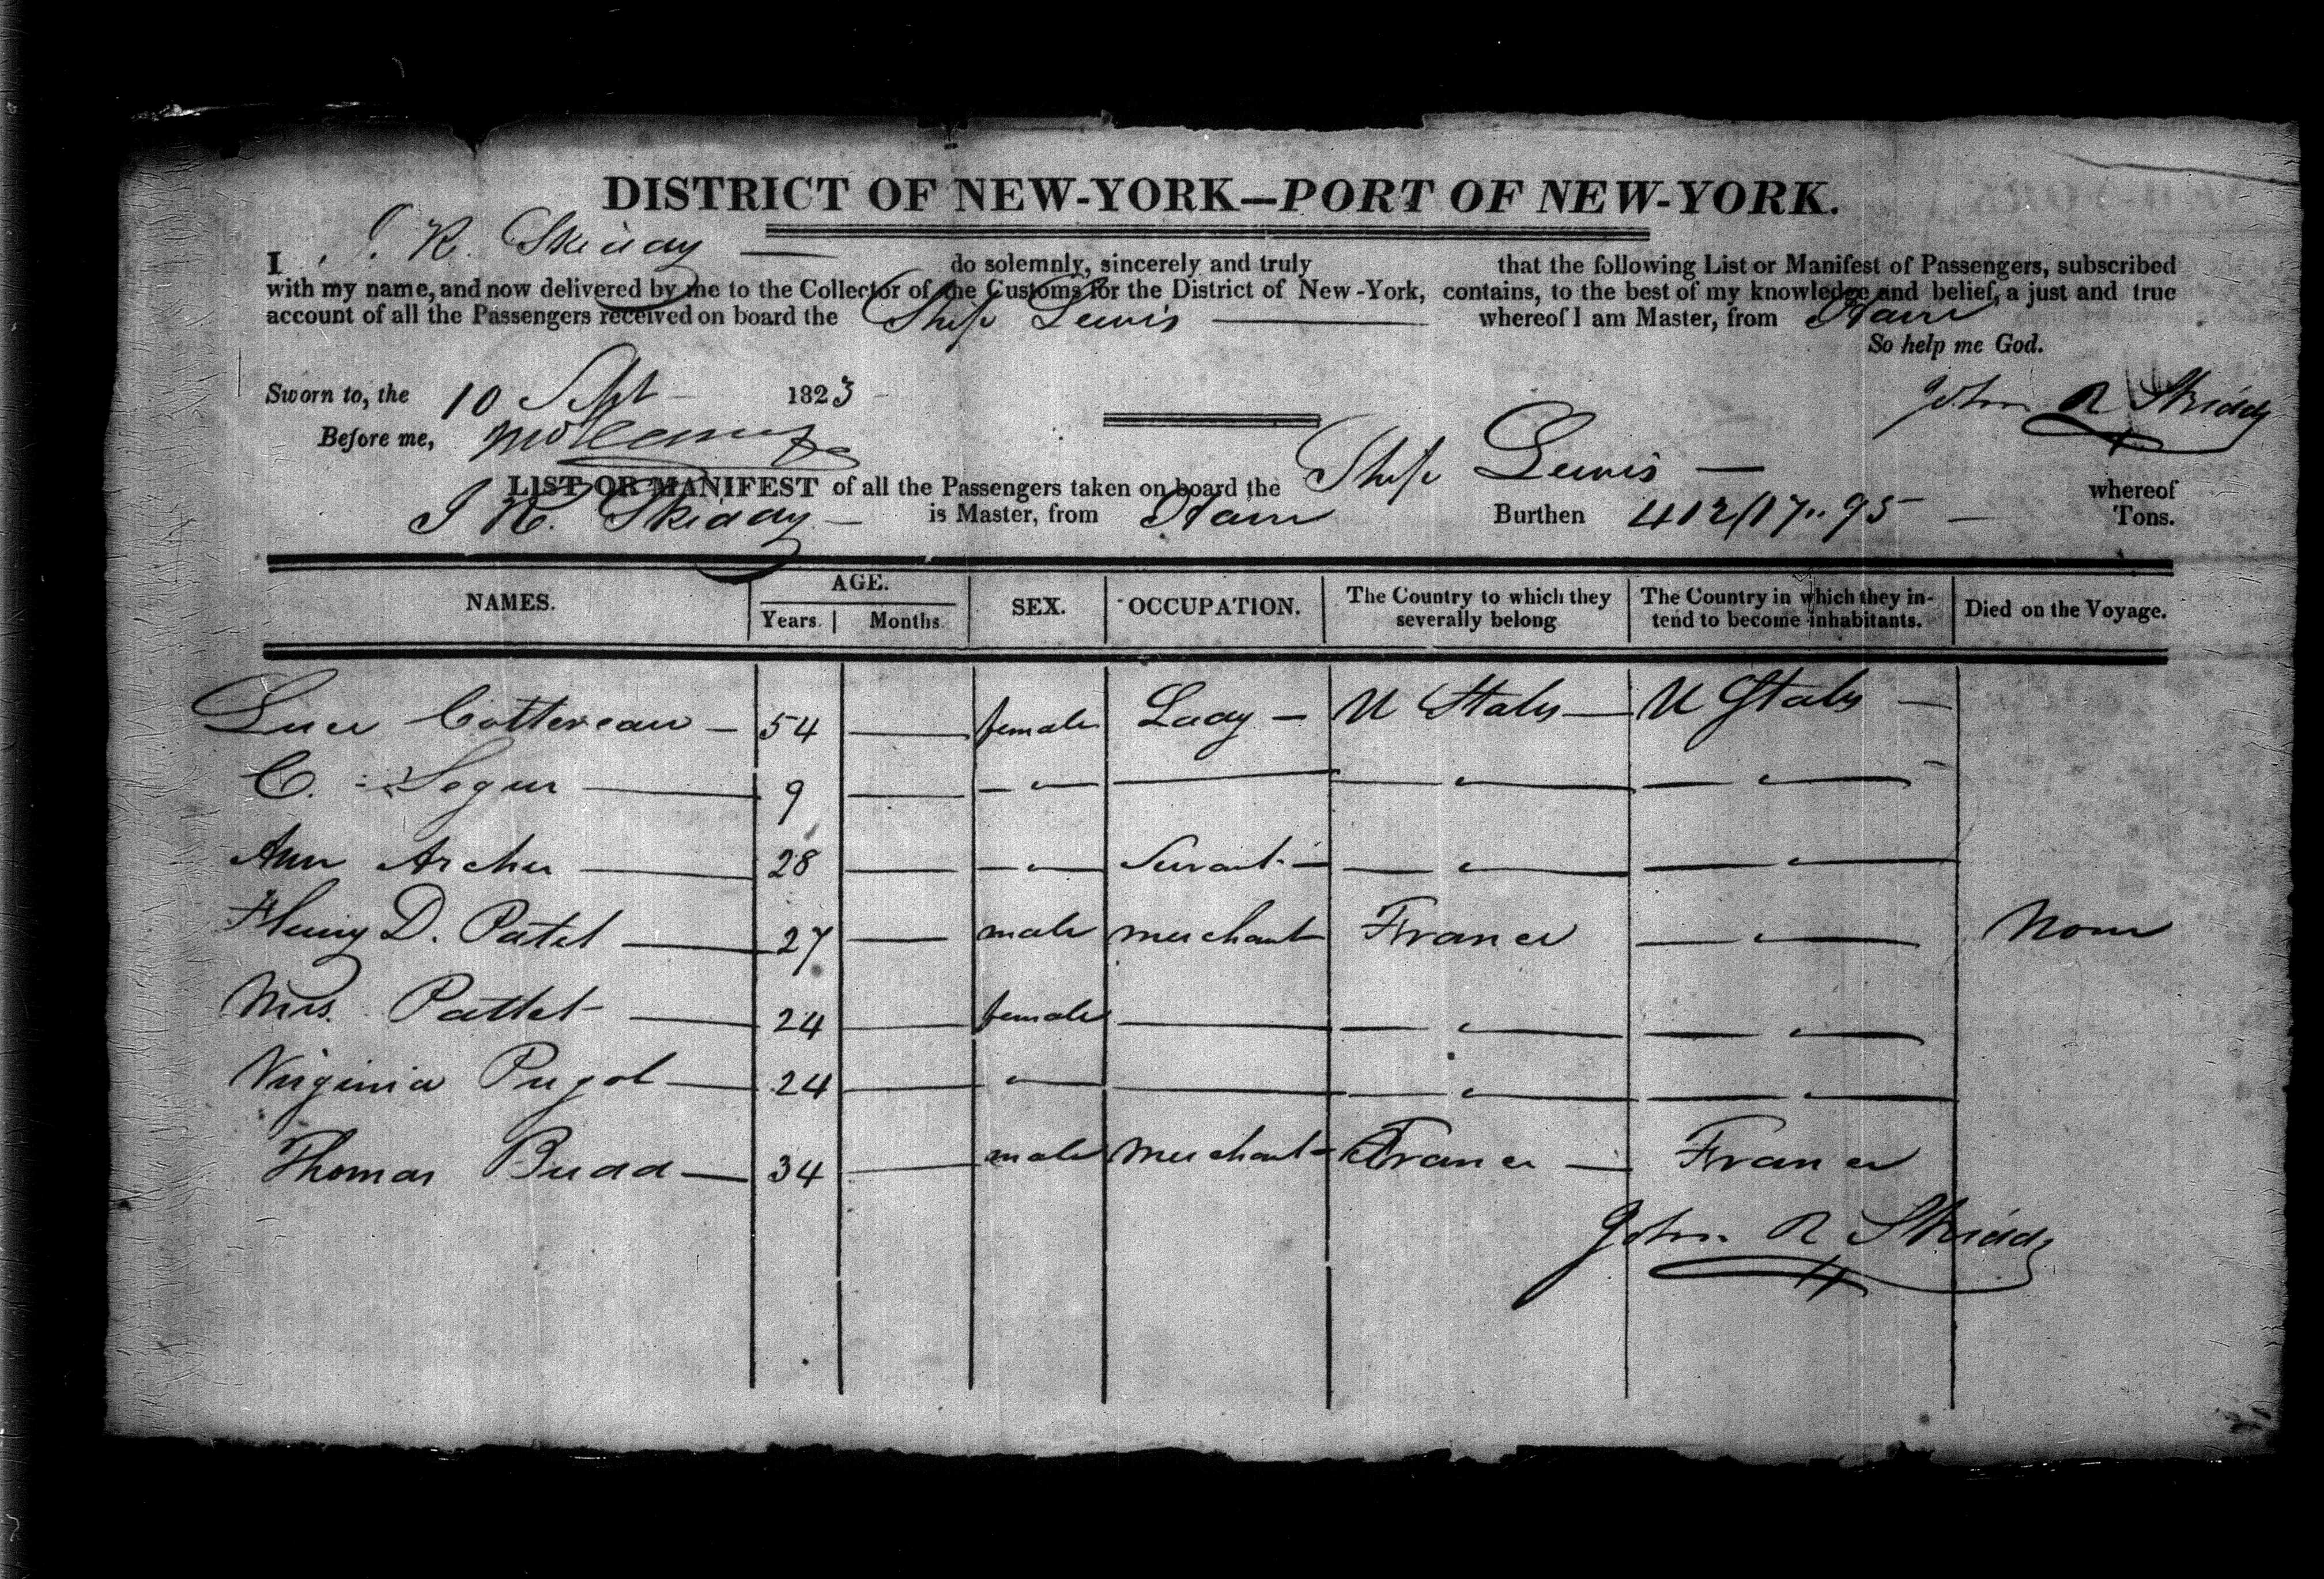 DISTRICT OF NEW-YORK—PORT OF NEW-YORK.
I J. R. Skiddy — do solemnly, sincerely and truly that the following List or Manifest of Passengers, subscribed
with my name, and now delivered by me to the Collector of the Customs for the District of New-York, contains, to the best of my knowledge and belief, a just and true
account of all the Passengers received on board the Ship Lewis — whereof I am Master, from Havre
So help me God.
Sworn to, the 10 Sept 1823
John R Skiddy
Before me,
LIST OR MANIFEST of all the Passengers taken on board the Ship Lewis — whereof
J R. Skiddy — is Master, from Havre Burthen 412/17..95 — Tons.
NAMES. AGE. Years. Months. SEX. OCCUPATION. The Country to which they severally belong The Country in which they intend to become inhabitants. Died on the Voyage.
Luce Cottereau — 54 — female Lady — U States — U States —
C. Segur — 9 — — " — — — " — — " —
Ann Archer — 28 — — " — Servant — — " — — " —
Henry D. Patel — 27 — male merchant France — " — None
Mrs. Pattet — 24 — female — — " — — " —
Virginia Pujol — 24 — " — — " — — " —
Thomas Budd — 34 — male merchant — France — France
John R Skiddy